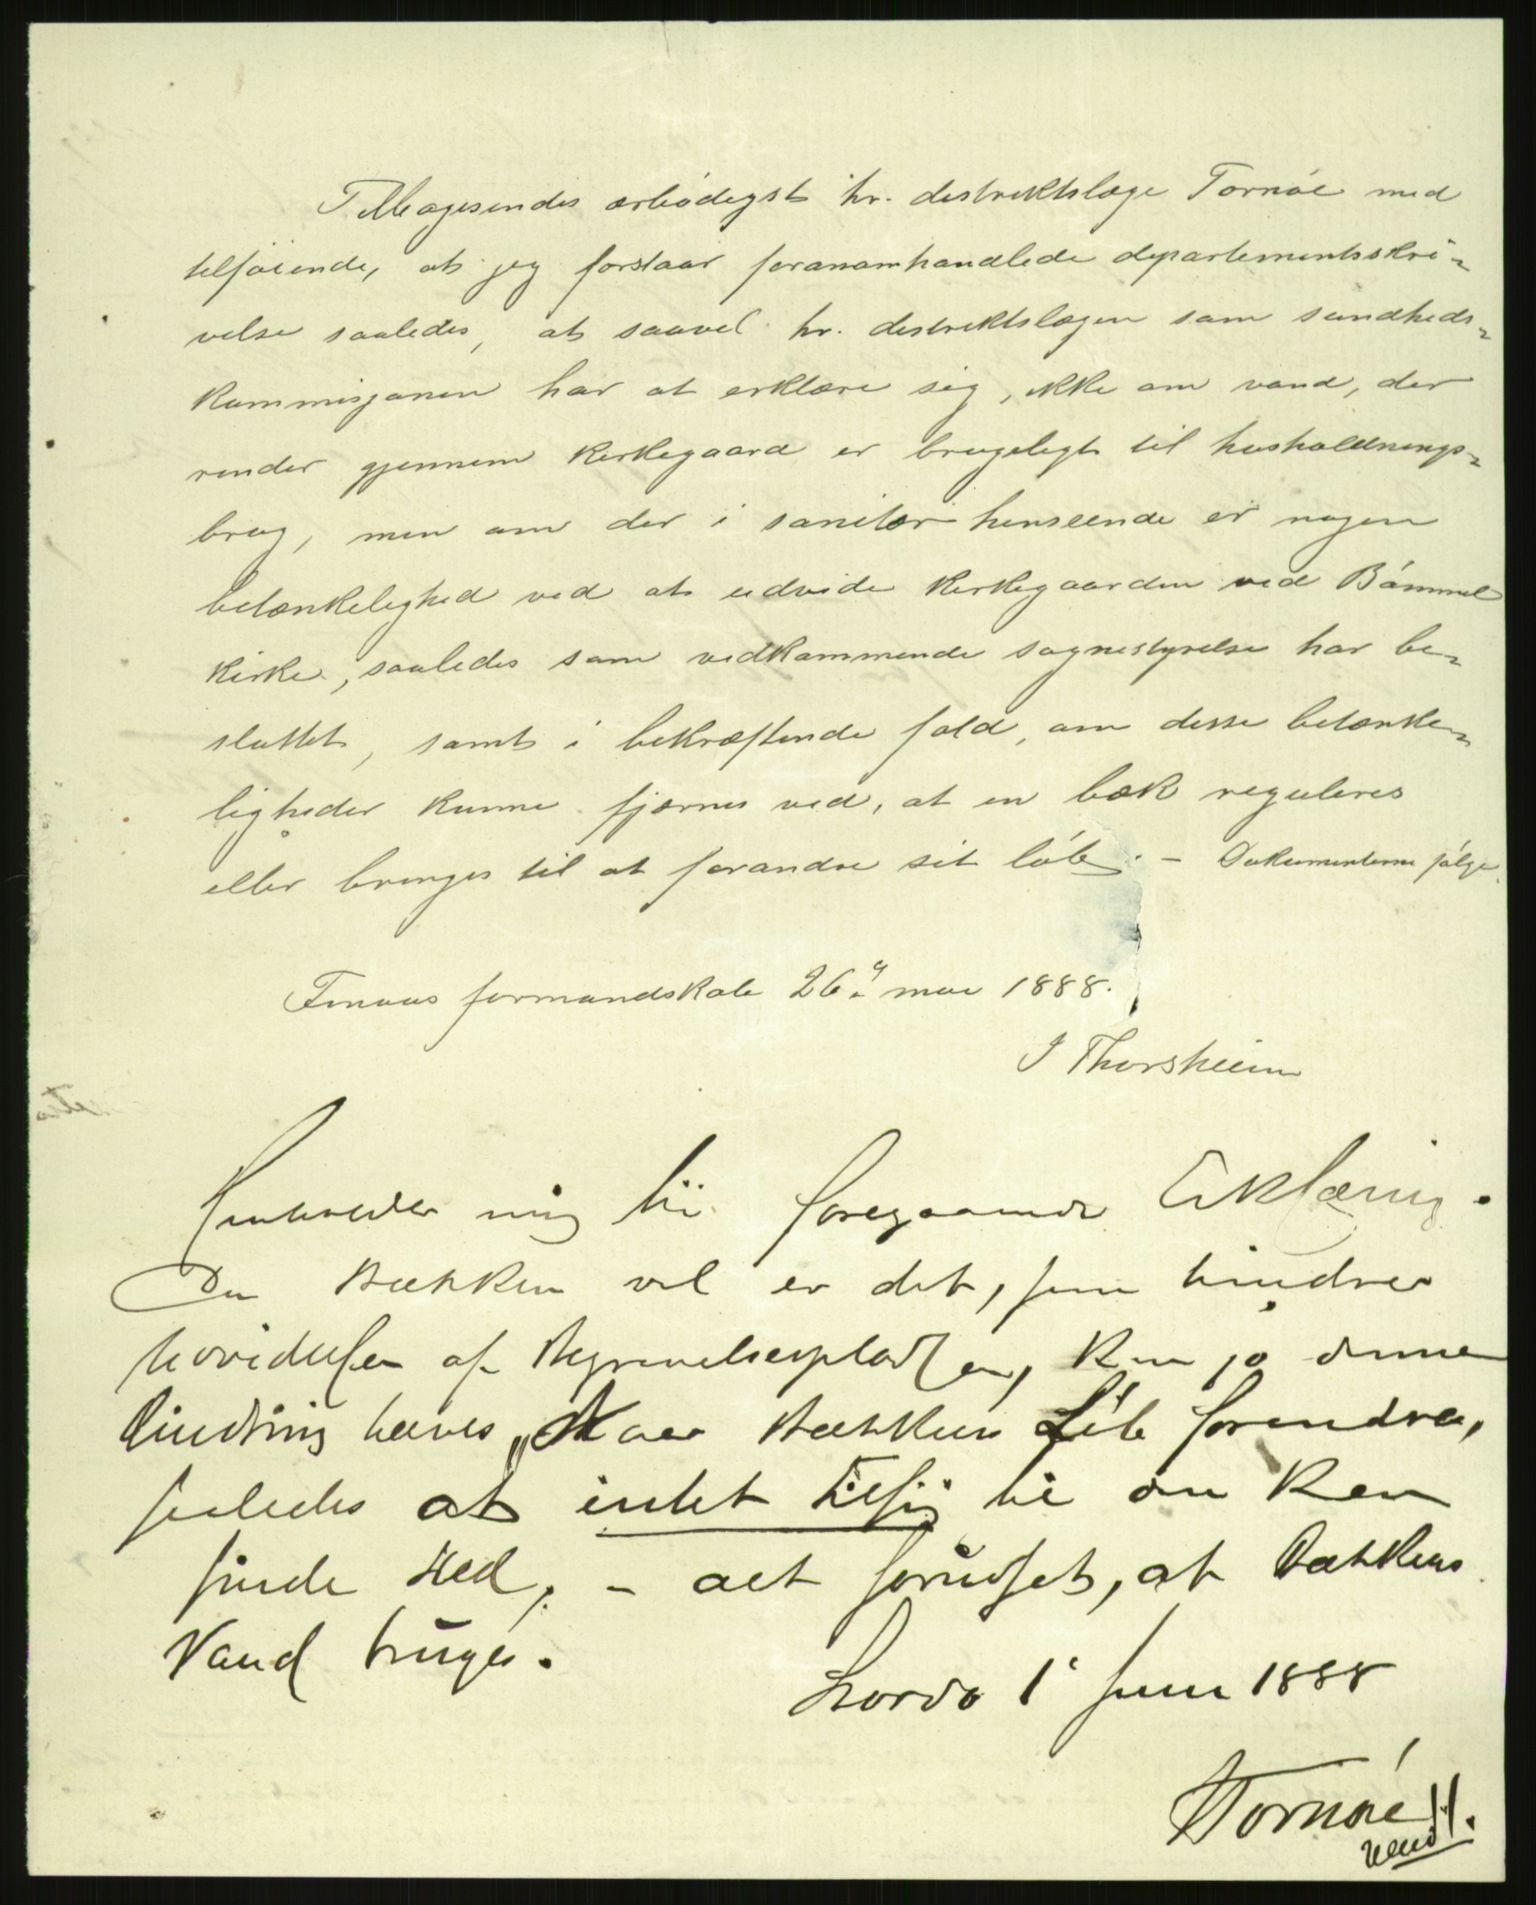 Tilbagesendes ærbødigst hr. distriktslæge Tornøe med
tilføiende, at jeg forstaar foranomhandlede departementsskri-
velse saaledes, at saavel hr. distriktslægen som sundheds-
kommisjonen har at erklære sig, ikke om vand, der
render gjennem kirkegaard er brugeligt til husholdnings-
brug, men om der i sanitær henseende er nogen
betænkelighed ved at udvide kirkegaarden ved Bømmel
kirke, saaledes som vedkommende sognestyrelse har be-
sluttet, samt i bekræftende fald, om disse betænke-
ligheder kunne fjærnes ved, at en bæk reguleres
eller bringes til at forandre sit løb. - Dokumenterne følge.
Finaas formandskab 26. mai 1888.
I Thorsheim
Henholder mig til foregaaende Erklæring.
Da Bækken vel er det, som hindrer
Udvidelsen af Begravelsespladsen, kan jo denne
Hindring hæves, naar Bækkens Løb forandres,
saaledes at intet Tilsig til den kan
finde Sted, - alt forudsat, at Bækkens
Vand bruges.
1 Juni 1888
Tornøe